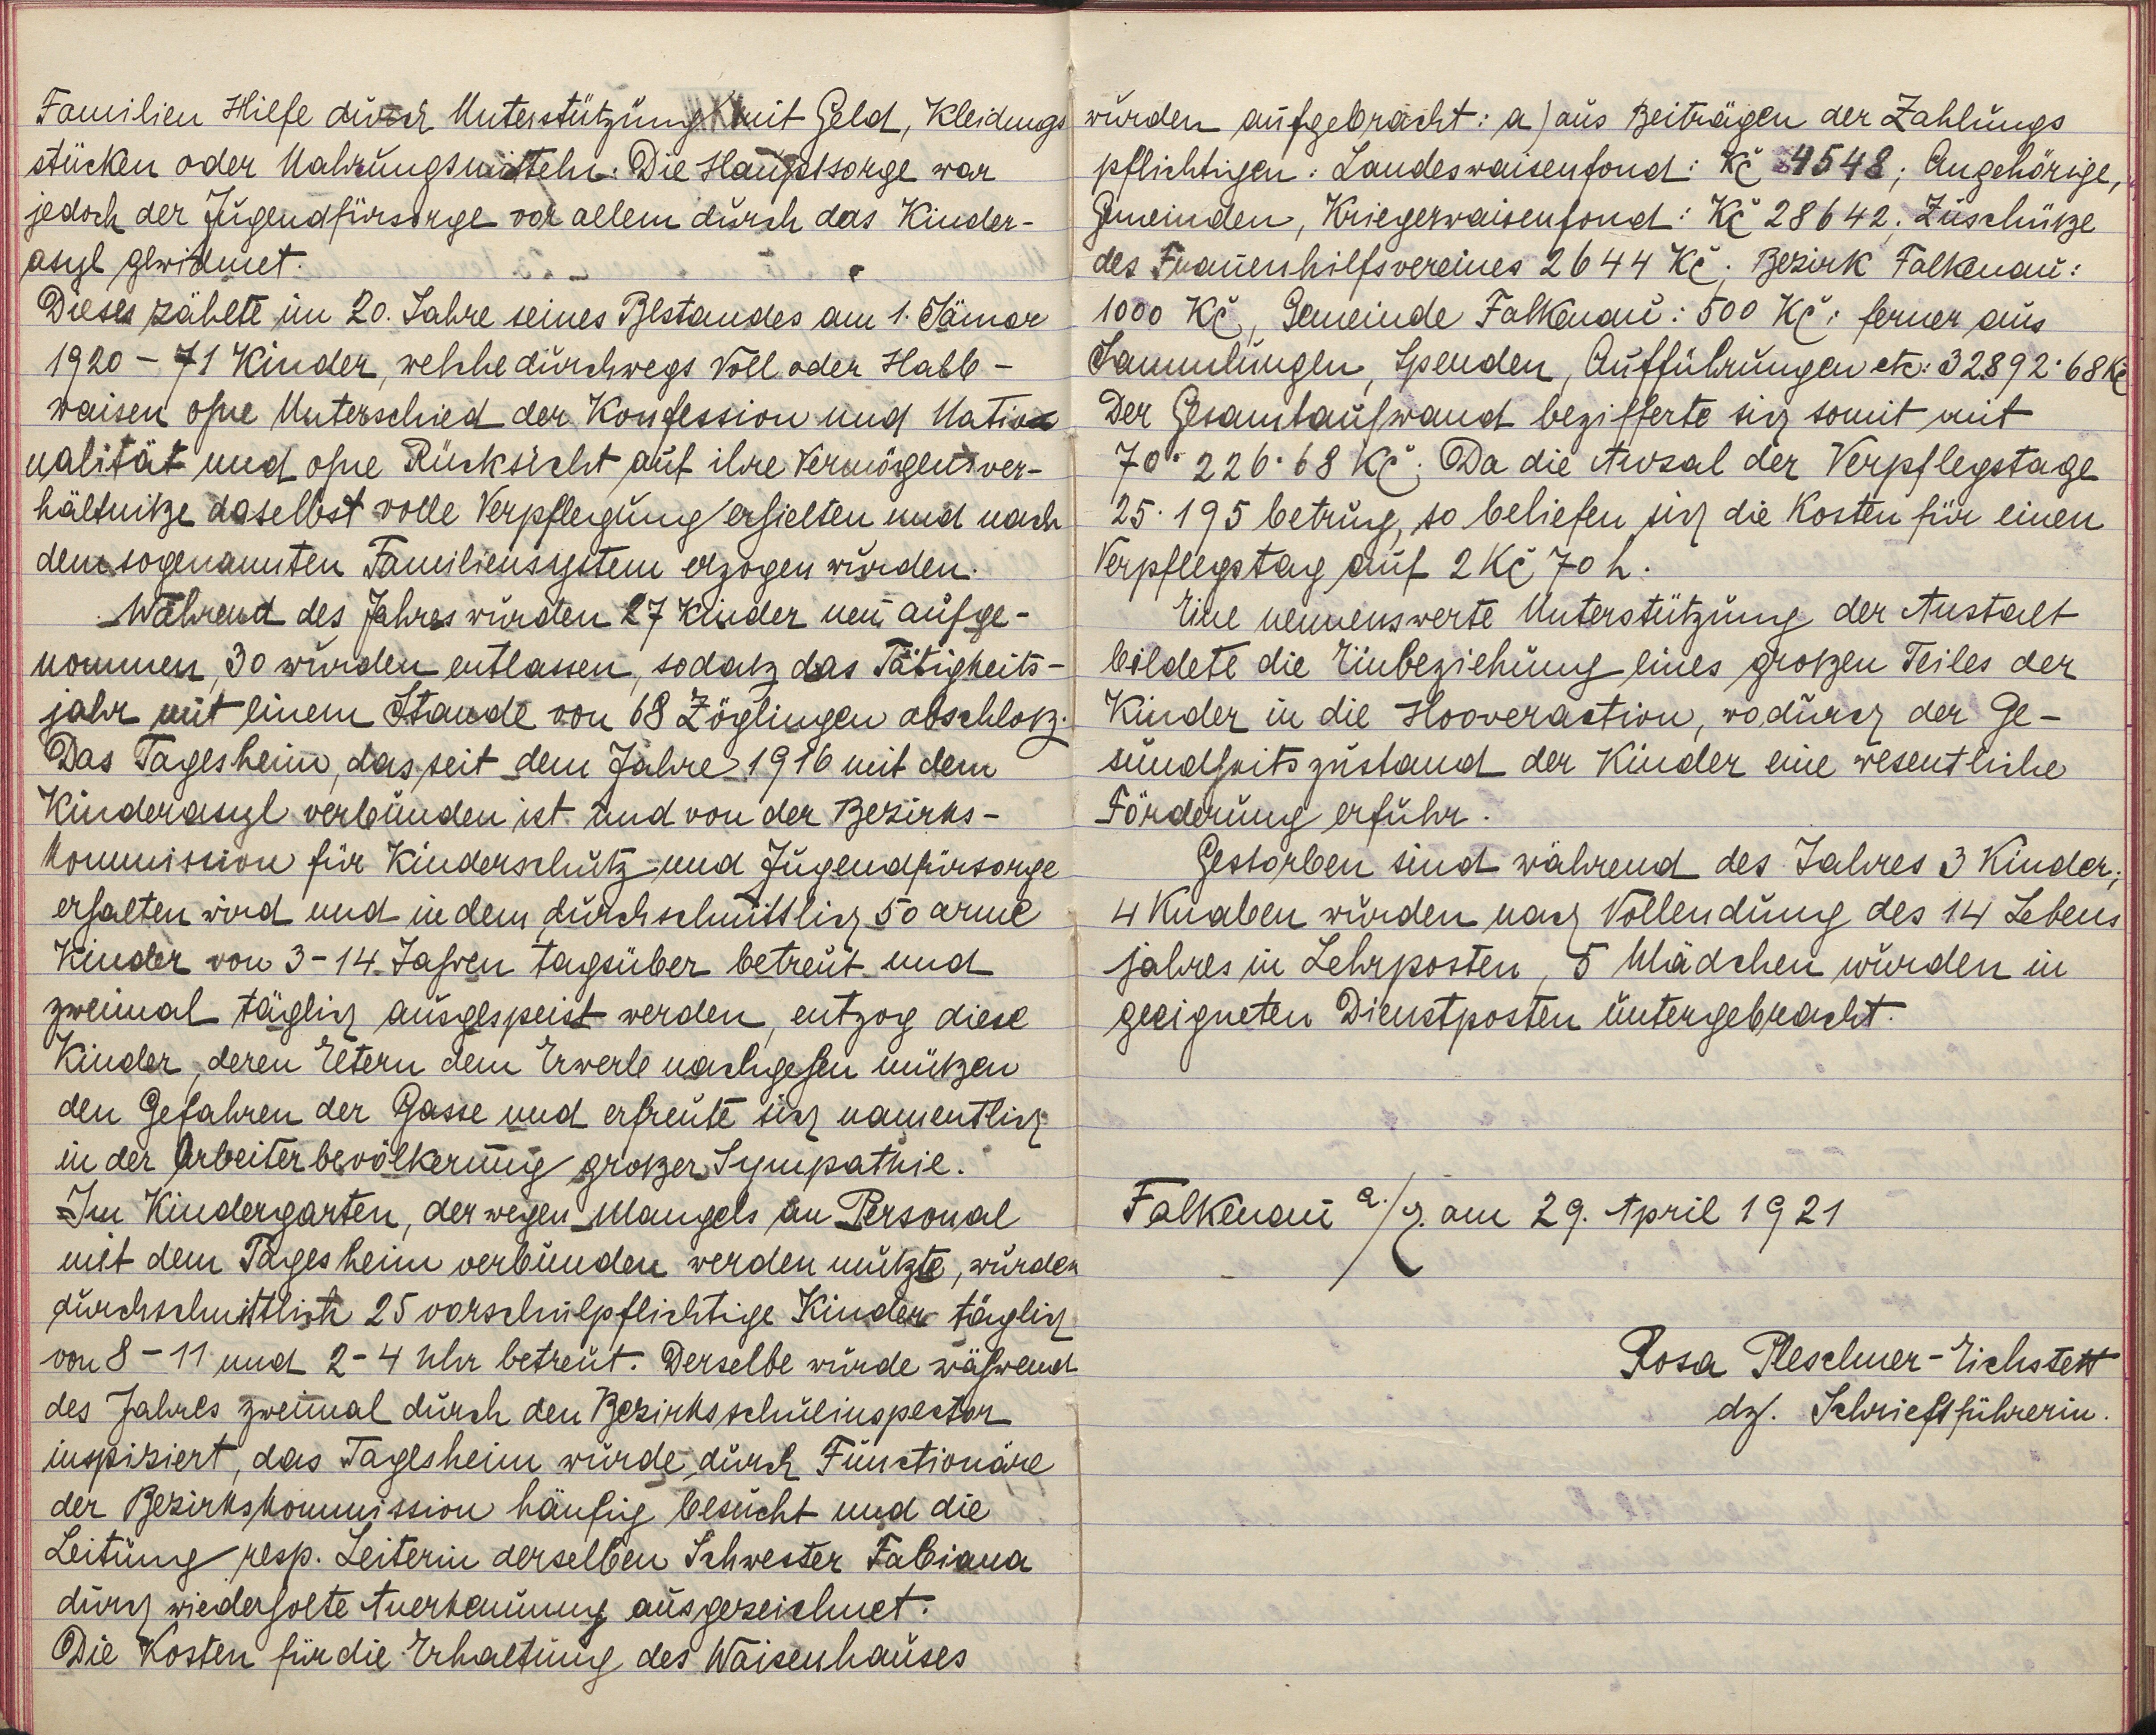 Familien Hilfe durch Unterstützung mit Geld, Kleidungs
stücken oder Nahrungsmitteln. Die Hauptsorge war
jedoch der Jugendfürsorge vor allem durch das Kinder-
asyl gewidmet.
Dieses zählte im 20. Jahre seines Bestandes am 1. Jänner
1920 - 71 Kinder, welche durchwegs Voll oder Halb-
waisen ohne Unterschied der Konfession und Natio
nalität und ohne Rücksicht auf ihre Vermögensver-
hältnitze daselbst volle Verpflegung erhielten und nach
dem sogenannten Familiensystem erzogen wurden.
Während des Jahres wurden 27 Kinder neu aufge-
nommen, 30 wurden entlassen, sodatz das Tätigheits-
jahr mit einem Stande von 68 Zöglingen abschlotz.
Das Tagesheim, das seit dem Jahre 1916 mit dem
Kinderasyl verbunden ist und von der Bezirks-
kommission für Kinderschutz und Jugendfürsorge
erhalten wird und in dem durchschnittlich 50 arme
Kinder von 3-14 Jahren tagsüber betreut und
zweimal täglich ausgespeist werden, entzog diese
Kinder, deren Eltern dem Erwerb nachgehen mützen
den Gefahren der Gasse und erfreute sich namentlich
in der Arbeiterbevölkerung grotzer Sympathie.
Im Kindergarten, der wegen Mangels an Personal
mit dem Tagesheim verbunden werden mutzte, wurden
durchschnittlich 25 vorschulpflichtige Kinder täglich
von 8-11 und 2-4 Uhr betreut. Derselbe wurde während
des Jahres zweimal durch den Bezirksschulinspector
inspiziert, das Tagesheim wurde durch Functionäre
der Bezirkskommission häufig besucht und die
Leitung resp. Leiterin derselben Schwester Fabiana
durch wiederholte Anerkennung ausgezeichnet.
Die Kosten für die Erhaltung des Waisenhauses
wurden aufgebracht: a) aus Beiträgen der Zahlungs
pflichtigen: Landeswaisenfond: Kč 4548; Angehörige,
Gmeinden, Kriegerwaisenfond: Kč 28642; Zuschütze
des Frauenhilfsvereines 2644 Kč; Bezirk Falkenau:
1000 Kč, Gemeinde Falkenau: 500 Kč; ferner aus
Sammlungen, Spenden, Aufführungen etc: 32892·68 Kč
Der Gesamtaufwand bezifferte sich somit mit
70·226·68 Kč. Da die Anzal der Verpflegstage
25·195 betrug, so beliefen sich die Kosten für einen
Verpflegstag auf 2 Kč 70 h.
Eine nennenswerte Unterstützung der Anstalt
bildete die Einbeziehung eines grotzen Teiles der
Kinder in die Hooveraction, wodurch der Ge-
sundheitszustand der Kinder eine wesentliche
Förderung erfuhr.
Gestorben sind während des Jahres 3 Kinder;
4 Knaben wurden nach Vollendung des 14 Lebens
jahres in Lehrposten, 5 Mädchen wurden in
geeigneten Dienstposten untergebracht.
Falkenau a./E. am 29. April 1921
Rosa Pleschner-Eichstett
dz. Schriftführerin.